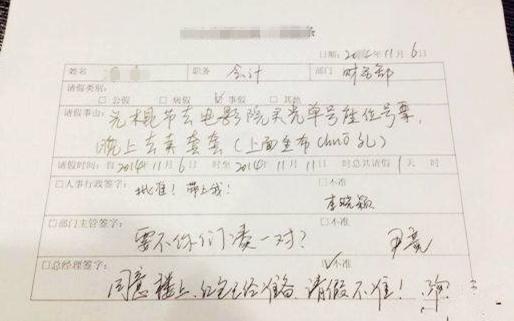 日期：2014年11月6日
姓名 职务 会计 部门 财务部
请假类别：
□公假 □病假 ☑事假 □其他
请假事由：光棍节去电影院买光单号座位号票，
晚上去卖套套（上面全布chuō孔）
请假时间：自2014年11月6日 时至2014年11月 日 时总共请假1天 时
□人事行政签字： □不准
批准！带上我！ 李晓颖
□部门主管签字： □不准
要不你们凑一对？ 尹亮
□总经理签字： ☑不准
同意楼上，红包已给准备，请假不准！